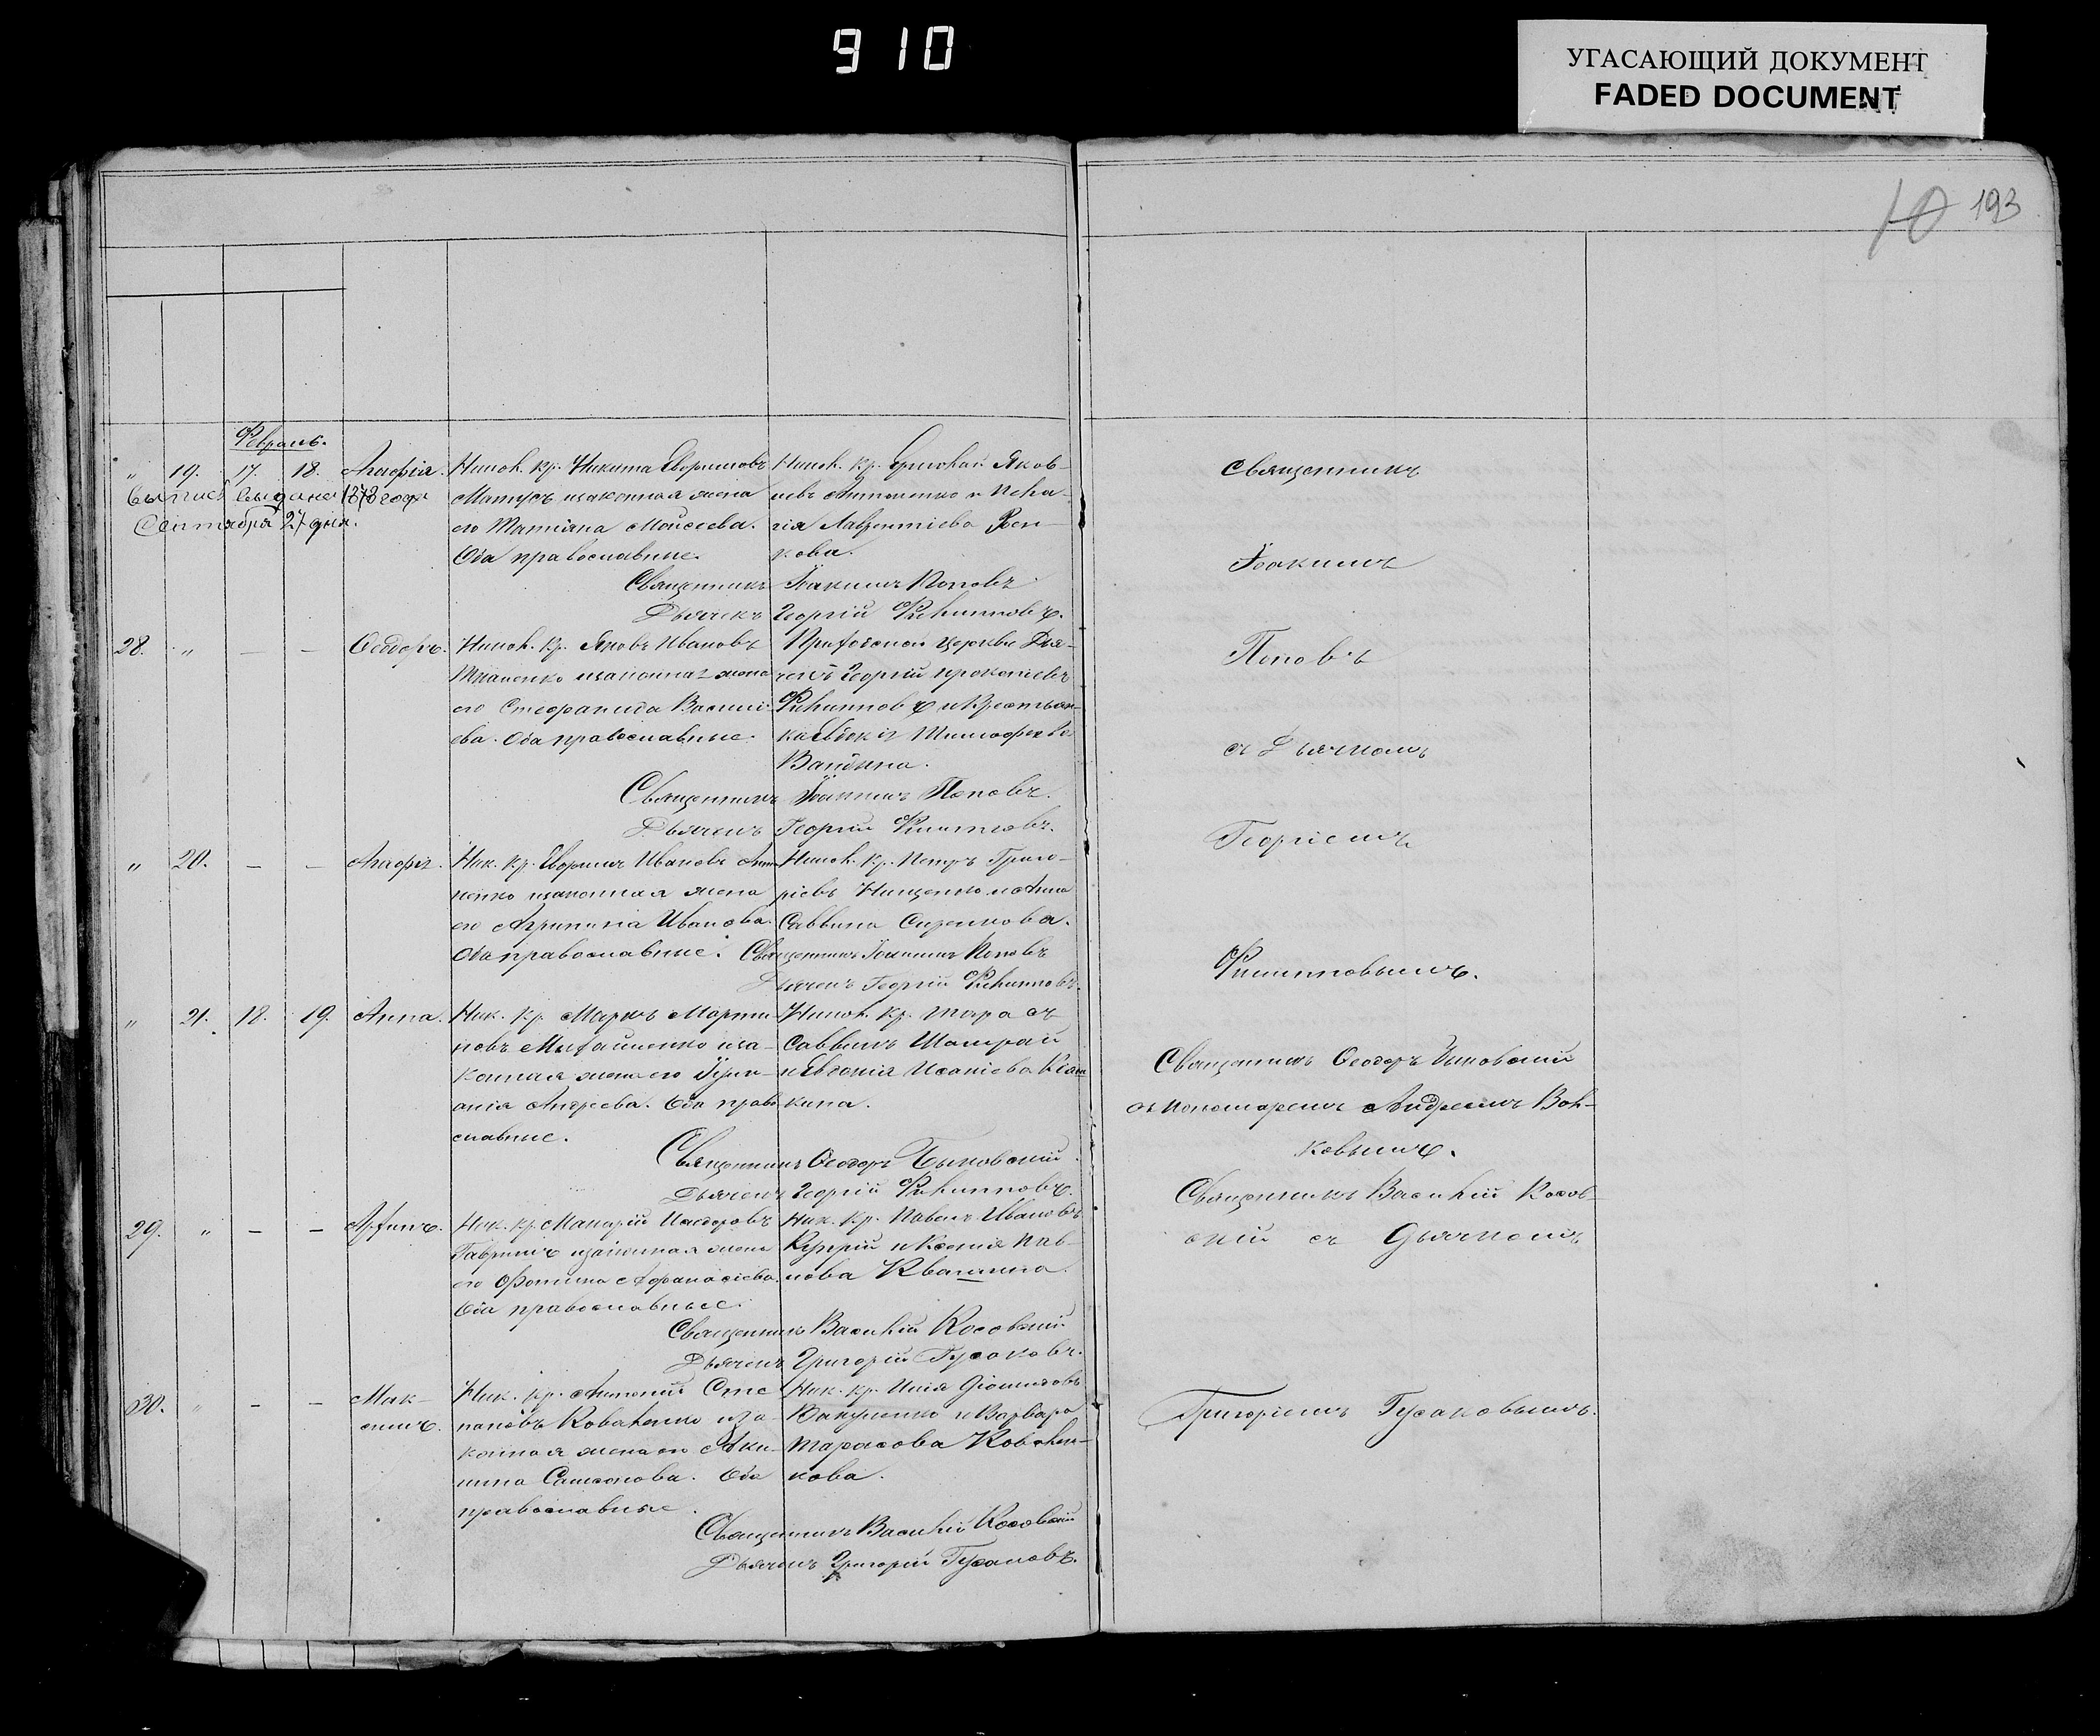 910
УГАСАЮЩИЙ ДОКУМЕНТ
FADED DOCUMENT
10 193
Февраль.
" 19. 17. 18. Агафія. Никол. кр. Никита Евфимовъ
Матусъ изаконная жена
его Татіяна Моисеева.
Оба православные.
Выпись выдана 1878 года
Сентября 27 дня.
Никол. кр. Яков-
левъ Антоненко и Пела-
гія Лаврентіева
кова.
Священникъ Іоакимъ Поповъ
Дьячекъ Георгій Филипповъ.
28. " — — Ѳеодоръ. Никол. кр. Яковъ Ивановъ
Ткаченко изаконная жена
его Стефанида Василі-
ева. Оба православные.
Приходской церкви Дья-
чекъ Георгій Прокопіевъ
Филипповъ и Крестьян-
ка Евдокія Тимофеева
Священникъ Іоакимъ Поповъ.
Дьячекъ Георгій Филипповъ.
" 20. — — Агафія. Ник. кр. Евфимъ Ивановъ Анто-
ненко изаконная жена
его Агрипина Иванова.
Оба православные.
Никол. кр. Петръ Григо-
ріевъ Нищенко и Анна
Саввина Сиренкова.
Священникъ Іоакимъ Поповъ
Дьячекъ Георгій Филипповъ.
" 21. 18. 19. Анна. Ник. кр. Маркъ Марти-
новъ Михайленко иза-
конная жена его Іули-
анія Андреева. Оба право-
славные.
Никол. кр. Тарасъ
Саввинъ Шамрай
и Евгенія Исакіева
кина.
Священникъ Ѳеодоръ Быковскій
Дьячекъ Георгій Филипповъ.
29. " — — Архипъ. Ник. кр. Макарій Исидоровъ
Гавришъ изаконная жена
его Фотина Афанасіева.
Оба православные.
Ник. кр. Павелъ Ивановъ
Купрій и Ксенія Пав-
лова Квашина.
Священникъ Василій Косовскій
Дьячекъ Григорій Гусаковъ.
30. " — — Мак-
симъ. Ник. кр. Антоній Сте-
пановъ Коваленко иза-
конная жена его Аки-
лина Самсонова. Оба
православные.
Ник. кр. Илія Діомидовъ
и Варвара
Тарасова Ковален-
кова.
Священникъ Василій Косовскій
Дьячекъ Григорій Гусаковъ.
Священникъ
Іоакимъ
Поповъ
съ Дьячкомъ
Георгіемъ
Филипповымъ.
Священникъ Ѳеодоръ Быковскій
съ Пономаремъ Андреемъ Вол-
ковымъ.
Священникъ Василій Косов-
скій съ Дьячкомъ
Григоріемъ Гусаковымъ.